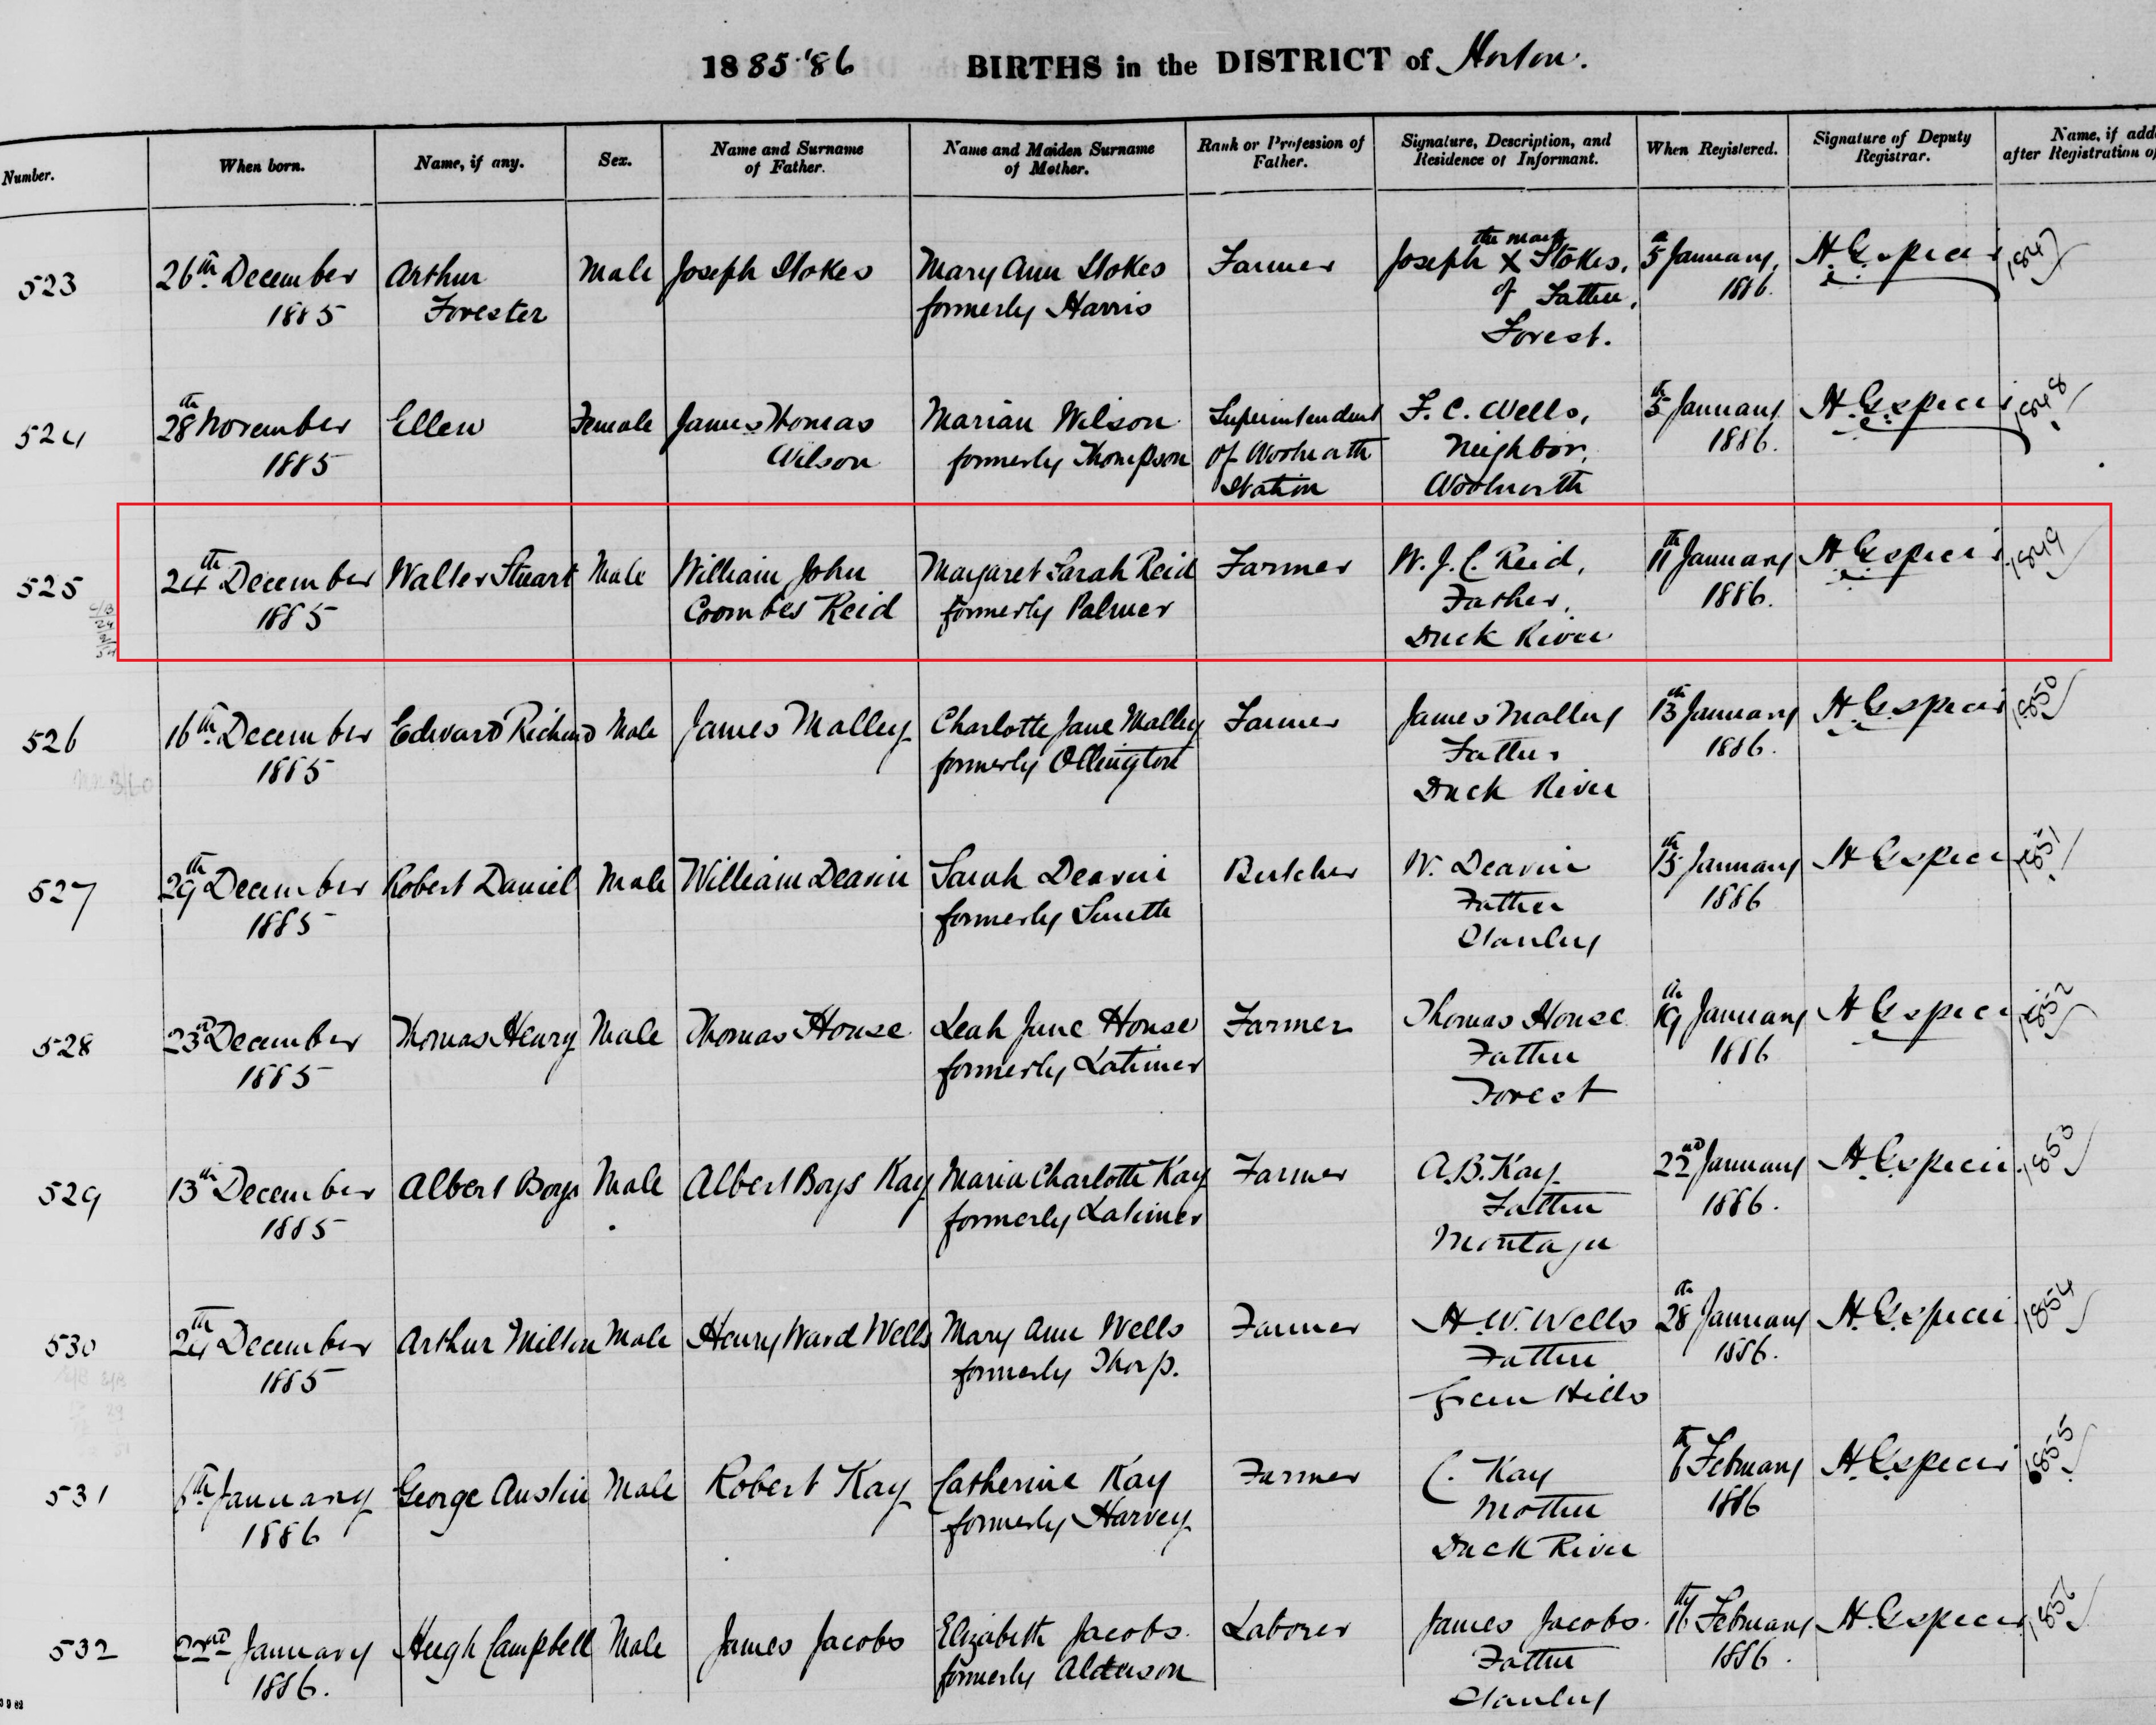 1885-'86 BIRTHS in the DISTRICT of Horton.
Number. When born. Name, if any. Sex. Name and Surname of Father. Name and Maiden Surname of Mother. Rank or Profession of Father. Signature, Description, and Residence of Informant. When Registered. Signature of Deputy Registrar. Name, if add after Registration of
523 26th December 1885 Arthur Forester Male Joseph Stokes Mary Ann Stokes formerly Harris Farmer Joseph the mark X of Stokes, Father, Forest. 5th January, 1886. 1847
524 28th November 1885 Ellen Female James Thomas Wilson Marian Wilson formerly Thompson Superintendent of Woolnorth Station F. C. Wells, Neighbor, Woolnorth 5th January 1886. 1848
525 24th December 1885 Walter Stuart Male William John Coombes Reid Margaret Sarah Reid formerly Palmer Farmer W. J. C. Reid, Father, Duck River 11th January 1886. 1849
526 16th December 1885 Edward Richard Male James Malley Charlotte Jane Malley formerly Ollington Farmer James Malley Father Duck River 13th January 1886. 1850
527 29th December 1885 Robert Daniel Male William Deavin Sarah Deavin formerly Smith Butcher W. Deavin Father Stanley 15th January 1886 1851
528 23rd December 1885 Thomas Henry Male Thomas House Leah Jane House formerly Latimer Farmer Thomas House Father Forest 19th January 1886 1852
529 13th December 1885 Albert Boys Male Albert Boys Kay Maria Charlotte Kay formerly Latimer Farmer A. B. Kay Father Montagu 22nd January 1886. 1853
530 24th December 1885 Arthur Milton Male Henry Ward Wells Mary Ann Wells formerly Thorp. Farmer H. W. Wells Father Green Hills 28th January 1886. 1854
531 6th January 1886 George Austin Male Robert Kay Catherine Kay formerly Harvey Farmer C. Kay Mother Duck River 6th February 1886 1855
532 22nd January 1886. Hugh Campbell Male James Jacobs Elizabeth Jacobs formerly Alderson Laborer James Jacobs. Father Stanley 16th February 1886. 1856